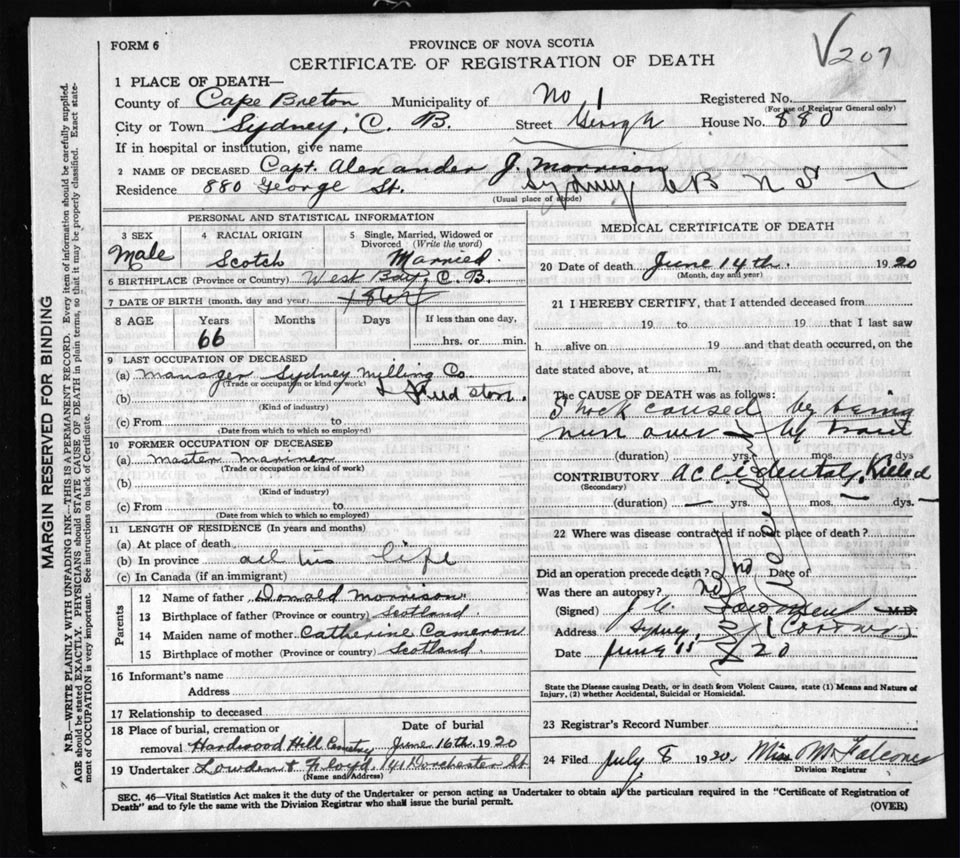 FORM 6
PROVINCE OF NOVA SCOTIA
V207
CERTIFICATE OF REGISTRATION OF DEATH
1 PLACE OF DEATH—
County of Cape Breton Municipality of No 1 Registered No.
(For use of Registrar General only)
City or Town Sydney, C. B. Street George House No. 880
If in hospital or institution, give name
2 NAME OF DECEASED Capt. Alexander J. Morrison
Residence 880 George St. Sydney C B N S
(Usual place of abode)
PERSONAL AND STATISTICAL INFORMATION
3 SEX
Male
4 RACIAL ORIGIN
Scotch
5 Single, Married, Widowed or Divorced (Write the word)
Married
6 BIRTHPLACE (Province or Country) West Bay, C. B.
7 DATE OF BIRTH (month, day and year)
8 AGE Years Months Days If less than one day,
66 hrs. or min.
9 LAST OCCUPATION OF DECEASED
(a) Manager Sydney Milling Co.
(Trade or occupation or kind of work)
(b) store
(Kind of industry)
(c) From to
(Date from which to which so employed)
10 FORMER OCCUPATION OF DECEASED
(a) Master Mariner
(Trade or occupation or kind of work)
(b)
(Kind of industry)
(c) From to
(Date from which to which so employed)
11 LENGTH OF RESIDENCE (In years and months)
(a) At place of death
(b) In province all his life
(c) In Canada (if an immigrant)
Parents
12 Name of father Donald Morrison
13 Birthplace of father (Province or country) Scotland
14 Maiden name of mother Catherine Cameron
15 Birthplace of mother (Province or country) Scotland.
16 Informant's name
Address
17 Relationship to deceased
18 Place of burial, cremation or removal Hardwood Hill Cemetry
Date of burial
June 16th 1920
19 Undertaker Lowden & Floyd, 141 Dorchester St
(Name and Address)
MEDICAL CERTIFICATE OF DEATH
20 Date of death June 14th. 1920
(Month, day and year)
21 I HEREBY CERTIFY, that I attended deceased from
19 to 19 that I last saw
h alive on 19 and that death occurred, on the
date stated above, at m.
The CAUSE OF DEATH was as follows:
Shock caused by being
run over by train
(duration) yrs. mos. dys
CONTRIBUTORY Accidentaly Killed
(Secondary)
(duration) yrs. mos. dys.
22 Where was disease contracted if not at place of death?
Did an operation precede death? no Date of
Was there an autopsy? no
(Signed) M.D.
Address Sydney, (Coroner)
Date June 15 20
State the Disease causing Death, or in death from Violent Causes, state (1) Means and Nature of
Injury, (2) whether Accidental, Suicidal or Homicidal.
23 Registrar's Record Number
24 Filed July 8 1920. Miss M
Division Registrar
SEC. 46—Vital Statistics Act makes it the duty of the Undertaker or person acting as Undertaker to obtain all the particulars required in the "Certificate of Registration of
Death" and to fyle the same with the Division Registrar who shall issue the burial permit.
(OVER)
MARGIN RESERVED FOR BINDING
N.B.—WRITE PLAINLY WITH UNFADING INK—THIS IS A PERMANENT RECORD. Every item of information should be carefully supplied.
AGE should be stated EXACTLY. PHYSICIANS should STATE CAUSE OF DEATH in plain terms, so that it may be properly classified. Exact state-
ment of OCCUPATION is very important. See instructions on back of Certificate.